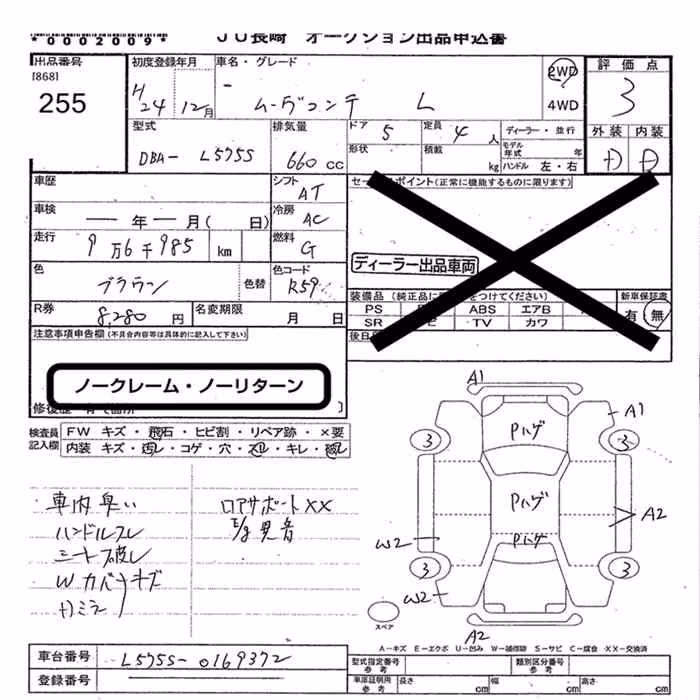 *0002009*
JU長崎 オークション出品申込書
出品番号
[868]
255
初度登録年月
H24年12月
車名・グレード
ムーヴコンテ L
2WD
4WD
評価点
3
外装 内装
D D
型式
DBA- L575S
排気量
660 cc
ドア
5
定員
4 人
ディーラー・並行
形状
積載
kg
モデル年式
年
ハンドル 左・右
車歴
シフト
AT
車検
年 月( 日)
冷房
AC
走行
9万6千985 km
燃料
G
色
ブラウン
色替
色コード
R59
R券
8,280 円
名変期限
月 日
ポイント(正常に機能するものに限ります)
ディーラー出品車両
装備品(純正品に をつけてください)
PS ABS エアB
SR TV カワ
新車保証書
有・無
注意事項申告欄(不具合内容等は具体的に記入して下さい)
ノークレーム・ノーリターン
検査員記入欄
FW キズ・飛石・ヒビ割・リペア跡・×要
内装 キズ・汚レ・コゲ・穴・スレ・キレ・破レ
車内臭い
ハンドルスレ
シート破レ
Wカバーキズ
ロアサポートXX
E/g異音
A1
A1
Pハゲ
3
3
Pハゲ
A2
Pハゲ
W2
3
3
W2
A2
スペア
A-キズ E-エクボ U-凹み W-補修跡 S-サビ C-腐食 XX-交換済
車台番号
L575S-0169372
登録番号
型式指定番号
参考
類別区分番号
参考
車庫証明用
参考
長さ
cm
幅
cm
高さ
cm